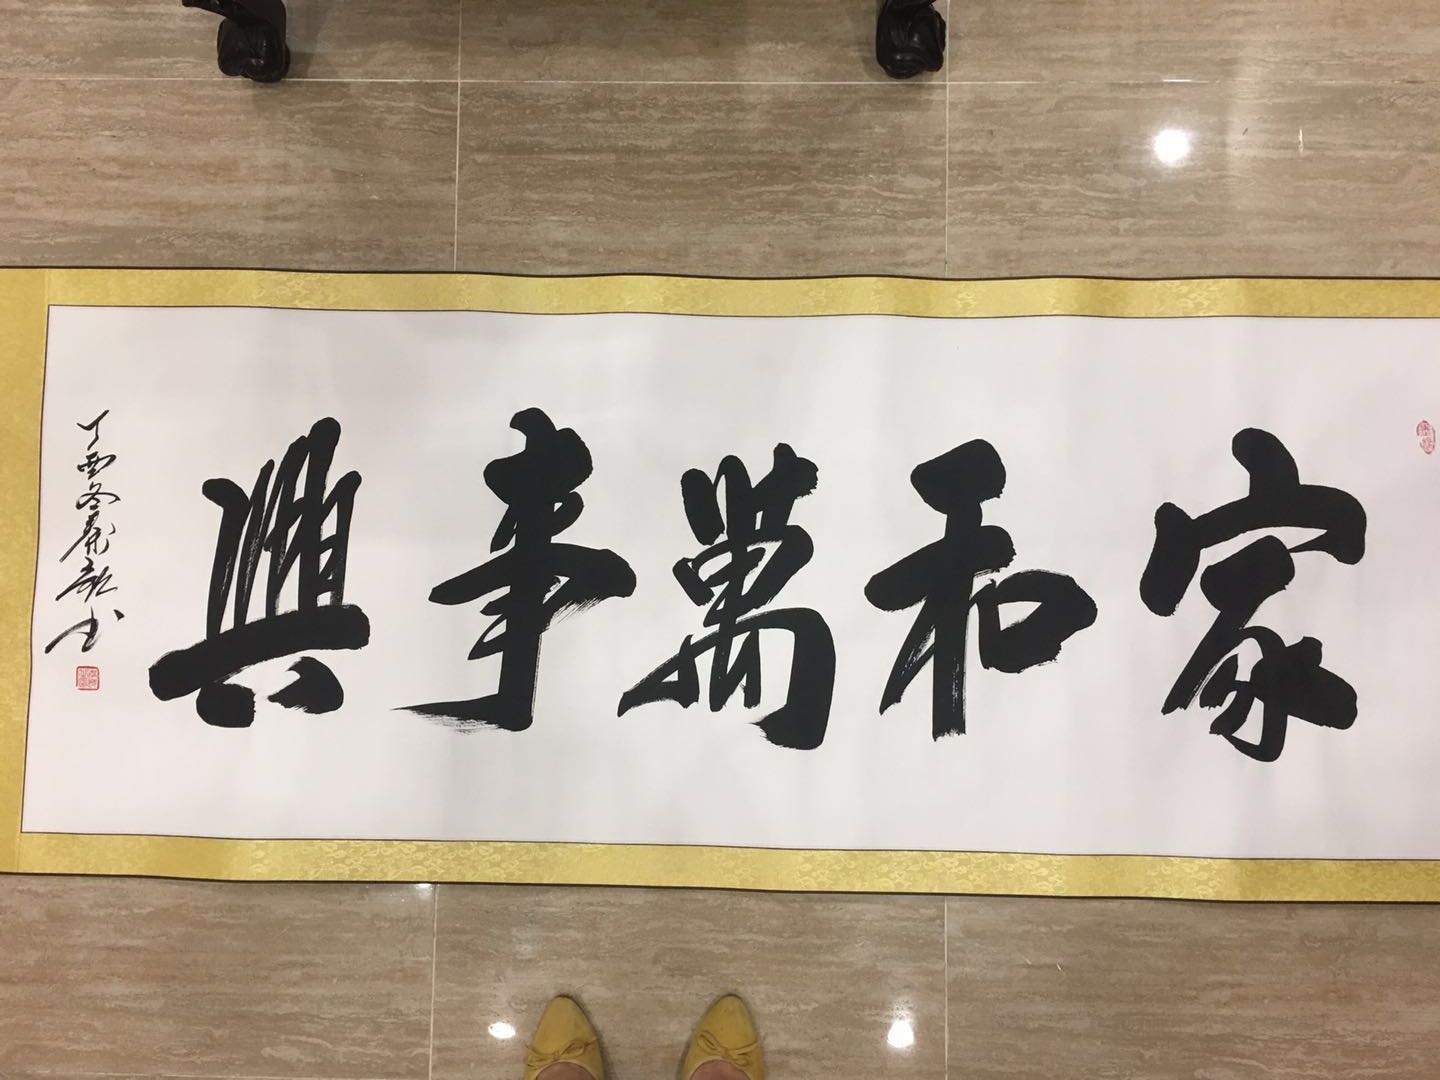 家和萬事興
丁酉冬秦歌書